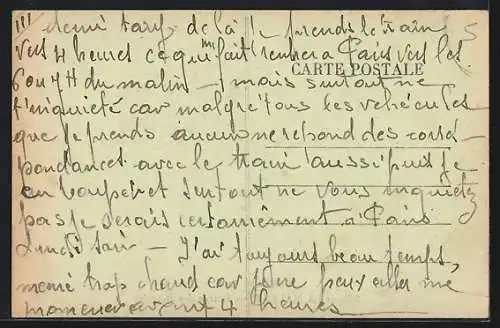 III
demi tarif de là je prends le train
vers 4 heures ce qui m'fait rentrer à Paris vers les
6 ou 7 H du matin – mais surtout ne
CARTE POSTALE
t'inquiété car malgré tous les vehécules
que je prends aucun ne repond des corres-
pondances avec le train aussi puis je
en louper et surtout ne vous inquietez
pas je serais certainement à Paris
Lundi soir – J'ai toujours beau temps,
meme trop chaud car je ne peux aller me
promener avant 4 heures